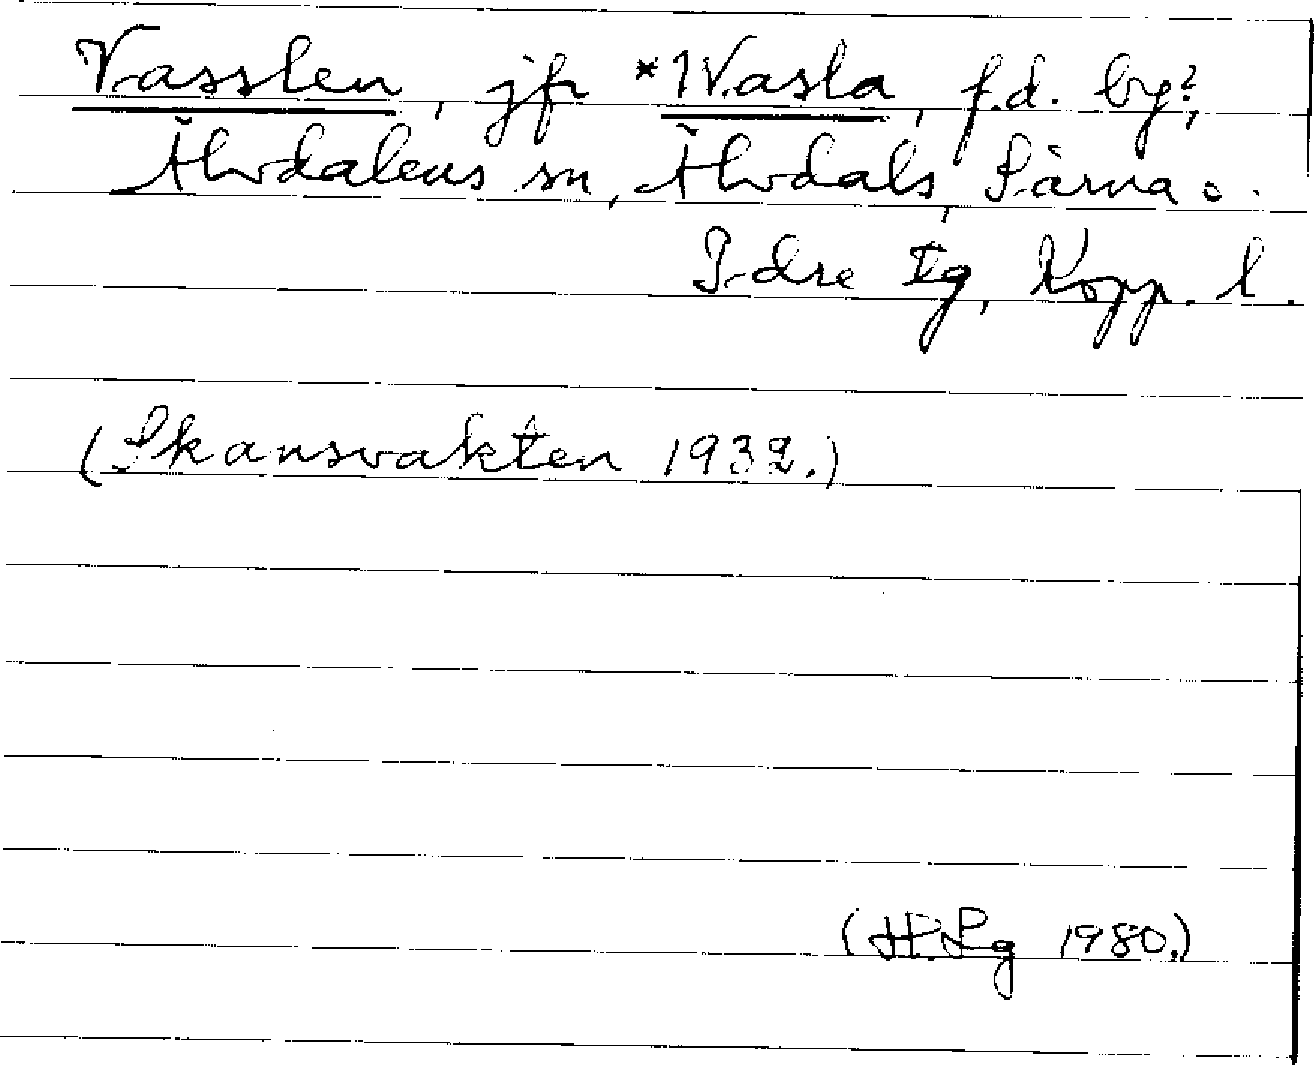 Vasslen, jfr *Vasla, f.d. by?,
Älvdalens sn, Älvdals, Särna o.
Idre tg, Kopp. l.
(Skansvakten 1932.)
(H.Lg 1980.)